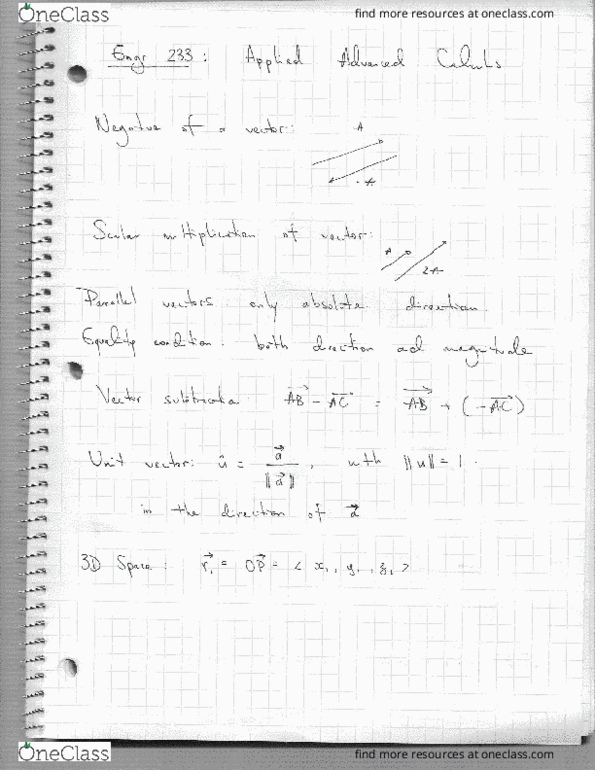 OneClass
find more resources at oneclass.com
Engr 233: Applied Advanced Calculus
Negative of a vector:
A
-A
Scalar multiplication of vector:
A
2A
Parallel vectors: only absolute direction.
Equality condition: both direction and magnitude
Vector subtraction AB - AC = AB + (-AC)
Unit vector: û = a⃗ / ||a⃗||, with ||u|| = 1.
in the direction of a⃗
3D Space: r⃗₁ = OP⃗ = < x₁, y₁, z₁ >
OneClass
find more resources at oneclass.com